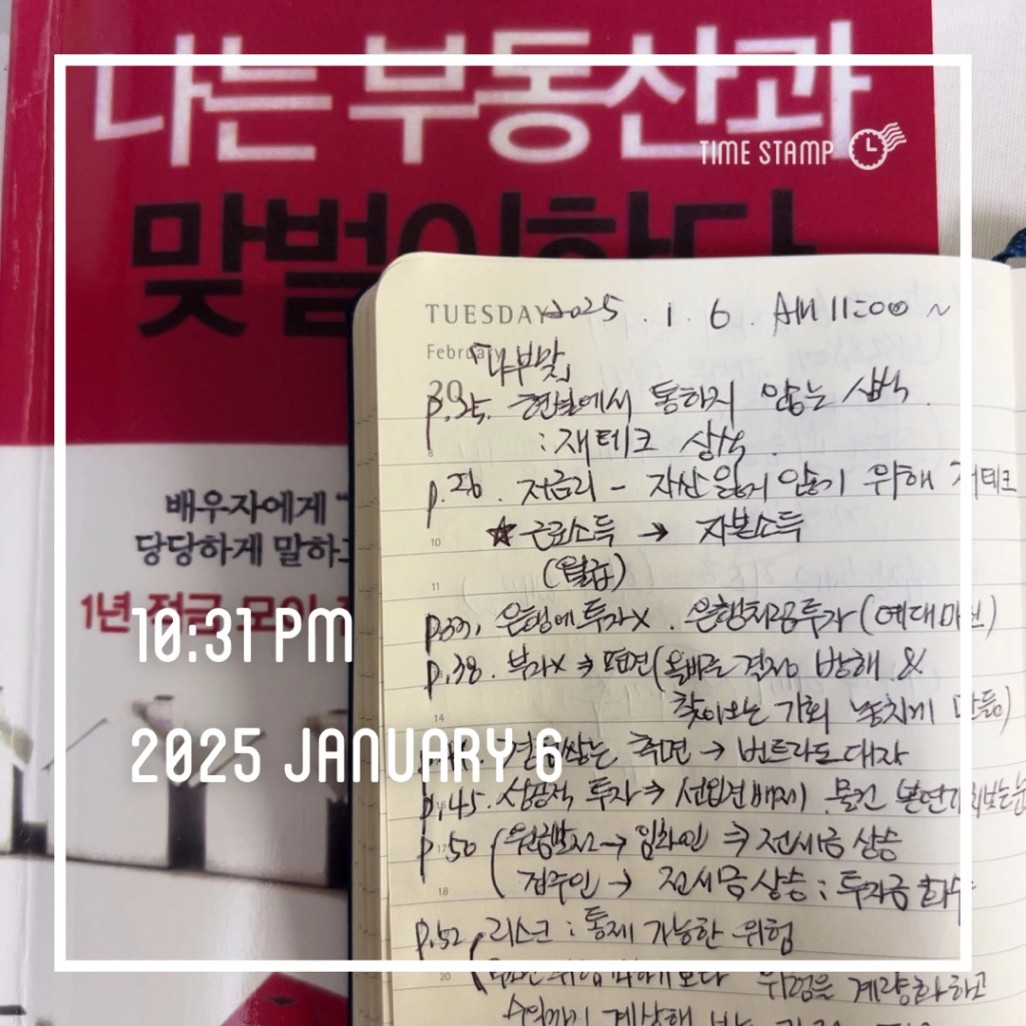 나는 부동산과
맞벌이한다
TIME STAMP
배우자에게 "
당당하게 말하고
1년 적금 모아
10:31 PM
2025 JANUARY 6
TUESDAY 2025 . 1 . 6 . AM 11:00 ~
February 「나부맞」
20
p.35. 현실에서 통하지 않는 상식.
: 재테크 상식.
p.36. 저금리 - 자산 잃지 않기 위해 재테크
10 ★ 근로소득 → 자본소득
11 (월급)
은행에 투자X . 은행처럼 투자 (예대마진)
p.38. 부자X ⇒ 편견 (올바른 결정 방해 &
14 찾아오는 기회 놓치게 만듦)
쌓는 측면 → 반드라도 대자
p.45. 성공적 투자 ⇒ 선입견 배제. 물건 본연 보는 눈
p.50 → 임차인 ⇒ 전세금 상승
18 집주인 → 전세금 상승 : 투자금 회수
p.52 리스크 : 통제 가능한 위험
20 보다 위험을 계량화하고